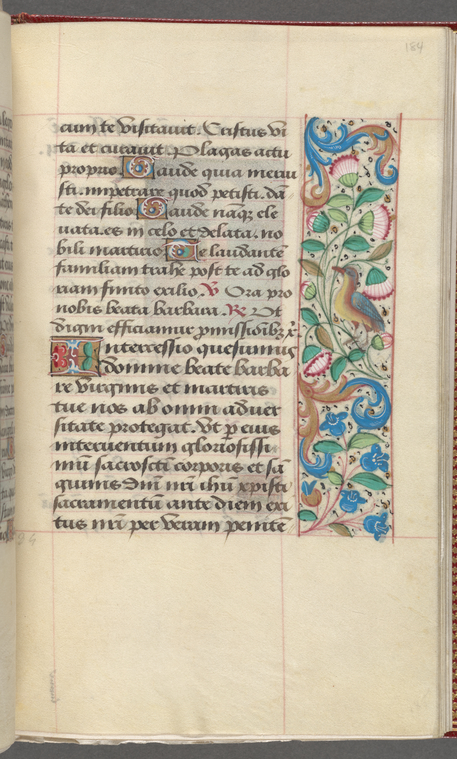 184
cum te visitavit. Cristus vi
ta et curavit. Plagas actu
proprio. Gaude quia meru
isti. impetrare quod petisti. dā
te dei filio. Gaude nāq; ele
vata. es in celo et delata. no
bili martirio. Te laudantē
familiam trahe post te ad glo
riam finito exilio. V Ora pro
nobis beata barbara. R Ut
digni efficiamur ꝓmissiōib; x̄.
Intercessio quesumus
domine beate barba
re virginis et martiris
tue nos ab omni adver
sitate protegat. Ut ꝑ eius
interventum gloriosissi
mū sacroscti corporis et sā
guinis dn̄i nr̄i ihū xpisti
sacramentū ante diem exi
tus nr̄i per veram penitē